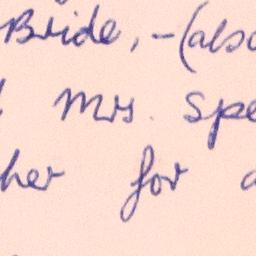 Bride, - (also
Mrs. Spe
her for a